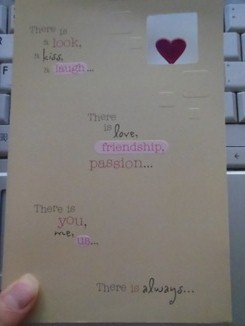 There is
a look,
a kiss,
a laugh...
There
is love,
friendship,
passion...
There is
you,
me,
us...
There is always...